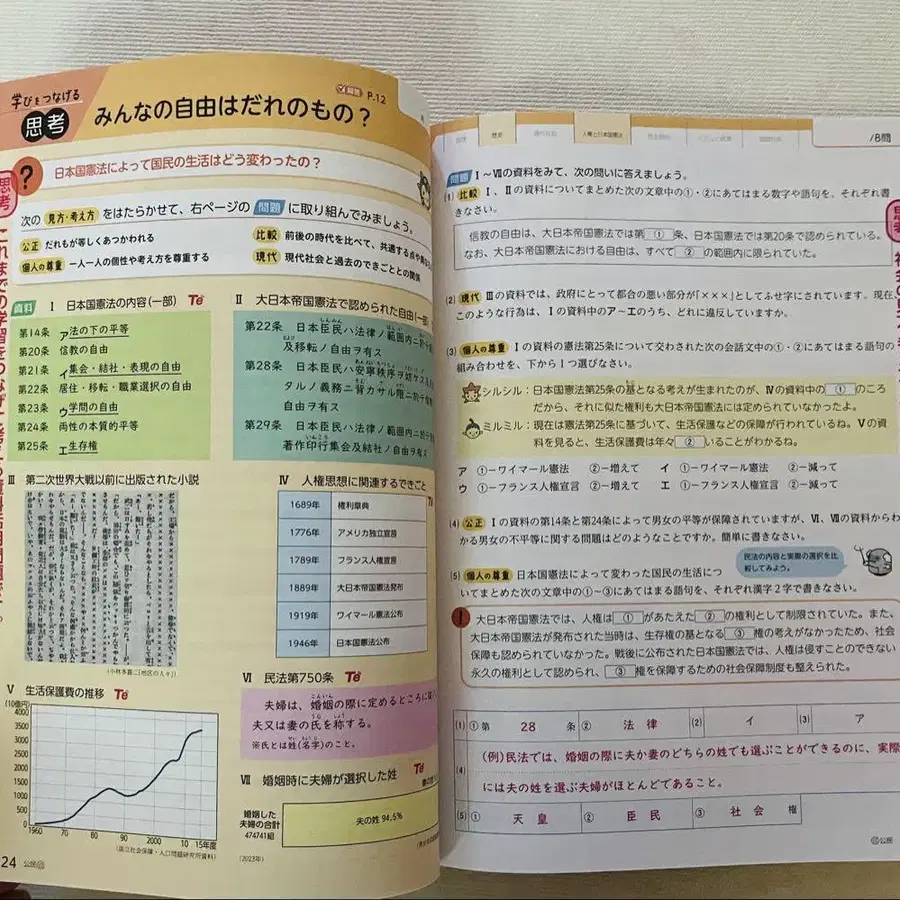 学びをつなげる
思考
みんなの自由はだれのもの？
解答 P.12
思考
? 日本国憲法によって国民の生活はどう変わったの？
次の 見方・考え方 をはたらかせて、右ページの 問題 に取り組んでみましょう。
公正 だれもが等しくあつかわれる
個人の尊重 一人一人の個性や考え方を尊重する
比較 前後の時代を比べて、共通する点や
現代 現代社会と過去のできごととの関係
資料 Ⅰ 日本国憲法の内容(一部) Te
第14条 ア法の下の平等
第20条 信教の自由
第21条 イ集会・結社・表現の自由
第22条 居住・移転・職業選択の自由
第23条 ウ学問の自由
第24条 両性の本質的平等
第25条 エ生存権
Ⅱ 大日本帝国憲法で認められた自由(一部)
第22条 日本臣民ハ法律ノ範囲内ニ於テ
及移転ノ自由ヲ有ス
第28条 日本臣民ハ安寧秩序ヲ妨ケス
タルノ義務ニ背カサル限ニ於テ
自由ヲ有ス
第29条 日本臣民ハ法律ノ範囲内ニ於テ
著作印行集会及結社ノ自由ヲ
Ⅲ 第二次世界大戦以前に出版された小説
(小林多喜二「地区の人々」)
Ⅳ 人権思想に関連するできごと
1689年 権利章典
1776年 アメリカ独立宣言
1789年 フランス人権宣言
1889年 大日本帝国憲法発布
1919年 ワイマール憲法公布
1946年 日本国憲法公布
Ⅴ 生活保護費の推移 Te
(10億円)
4000
3500
3000
2500
2000
1500
1000
500
0
1960 70 80 90 2000 10 15年度
(国立社会保障・人口問題研究所資料)
Ⅵ 民法第750条 Te
夫婦は、婚姻の際に定めるところに
夫又は妻の氏を称する。
※氏とは姓(名字)のこと。
Ⅶ 婚姻時に夫婦が選択した姓 Te
婚姻した
夫婦の合計
474741組
夫の姓 94.5%
(2023年)
24 公民
人権と日本国憲法
/8問
問題 Ⅰ～Ⅶの資料をみて、次の問いに答えましょう。
(1) 比較 Ⅰ、Ⅱの資料についてまとめた次の文章中の①・②にあてはまる数字や語句を、それぞれ書
きなさい。
信教の自由は、大日本帝国憲法では第 ① 条、日本国憲法では第20条で認められている。
なお、大日本帝国憲法における自由は、すべて ② の範囲内に限られていた。
(2) 現代 Ⅲの資料では、政府にとって都合の悪い部分が「×××」としてふせ字にされています。現在、
このような行為は、Ⅰの資料中のア～エのうち、どれに違反していますか。
(3) 個人の尊重 Ⅰの資料の憲法第25条について交わされた次の会話文中の①・②にあてはまる語句の
組み合わせを、下から1つ選びなさい。
シルシル：日本国憲法第25条の基となる考えが生まれたのが、Ⅳの資料中の ① のころ
だから、それに似た権利も大日本帝国憲法には定められていなかったよ。
ミルミル：現在は憲法第25条に基づいて、生活保護などの保障が行われているね。Ⅴの資
料を見ると、生活保護費は年々 ② いることがわかるね。
ア ①－ワイマール憲法 ②－増えて イ ①－ワイマール憲法 ②－減って
ウ ①－フランス人権宣言 ②－増えて エ ①－フランス人権宣言 ②－減って
(4) 公正 Ⅰの資料の第14条と第24条によって男女の平等が保障されていますが、Ⅵ、Ⅶの資料からわ
かる男女の不平等に関する問題はどのようなことですか。簡単に書きなさい。
民法の内容と実際の選択を比
較してみよう。
(5) 個人の尊重 日本国憲法によって変わった国民の生活につ
いてまとめた次の文章中の①～③にあてはまる語句を、それぞれ漢字2字で書きなさい。
! 大日本帝国憲法では、人権は ① があたえた ② の権利として制限されていた。また、
大日本帝国憲法が発布された当時は、生存権の基となる ③ 権の考えがなかったため、社会
保障も認められていなかった。戦後に公布された日本国憲法では、人権は侵すことのできない
永久の権利として認められ、 ③ 権を保障するための社会保障制度も整えられた。
(1) ① 第 28 条 ② 法律 (2) イ (3) ア
(4) (例)民法では、婚姻の際に夫か妻のどちらの姓でも選ぶことができるのに、実際
には夫の姓を選ぶ夫婦がほとんどであること。
(5) ① 天皇 ② 臣民 ③ 社会 権
公民